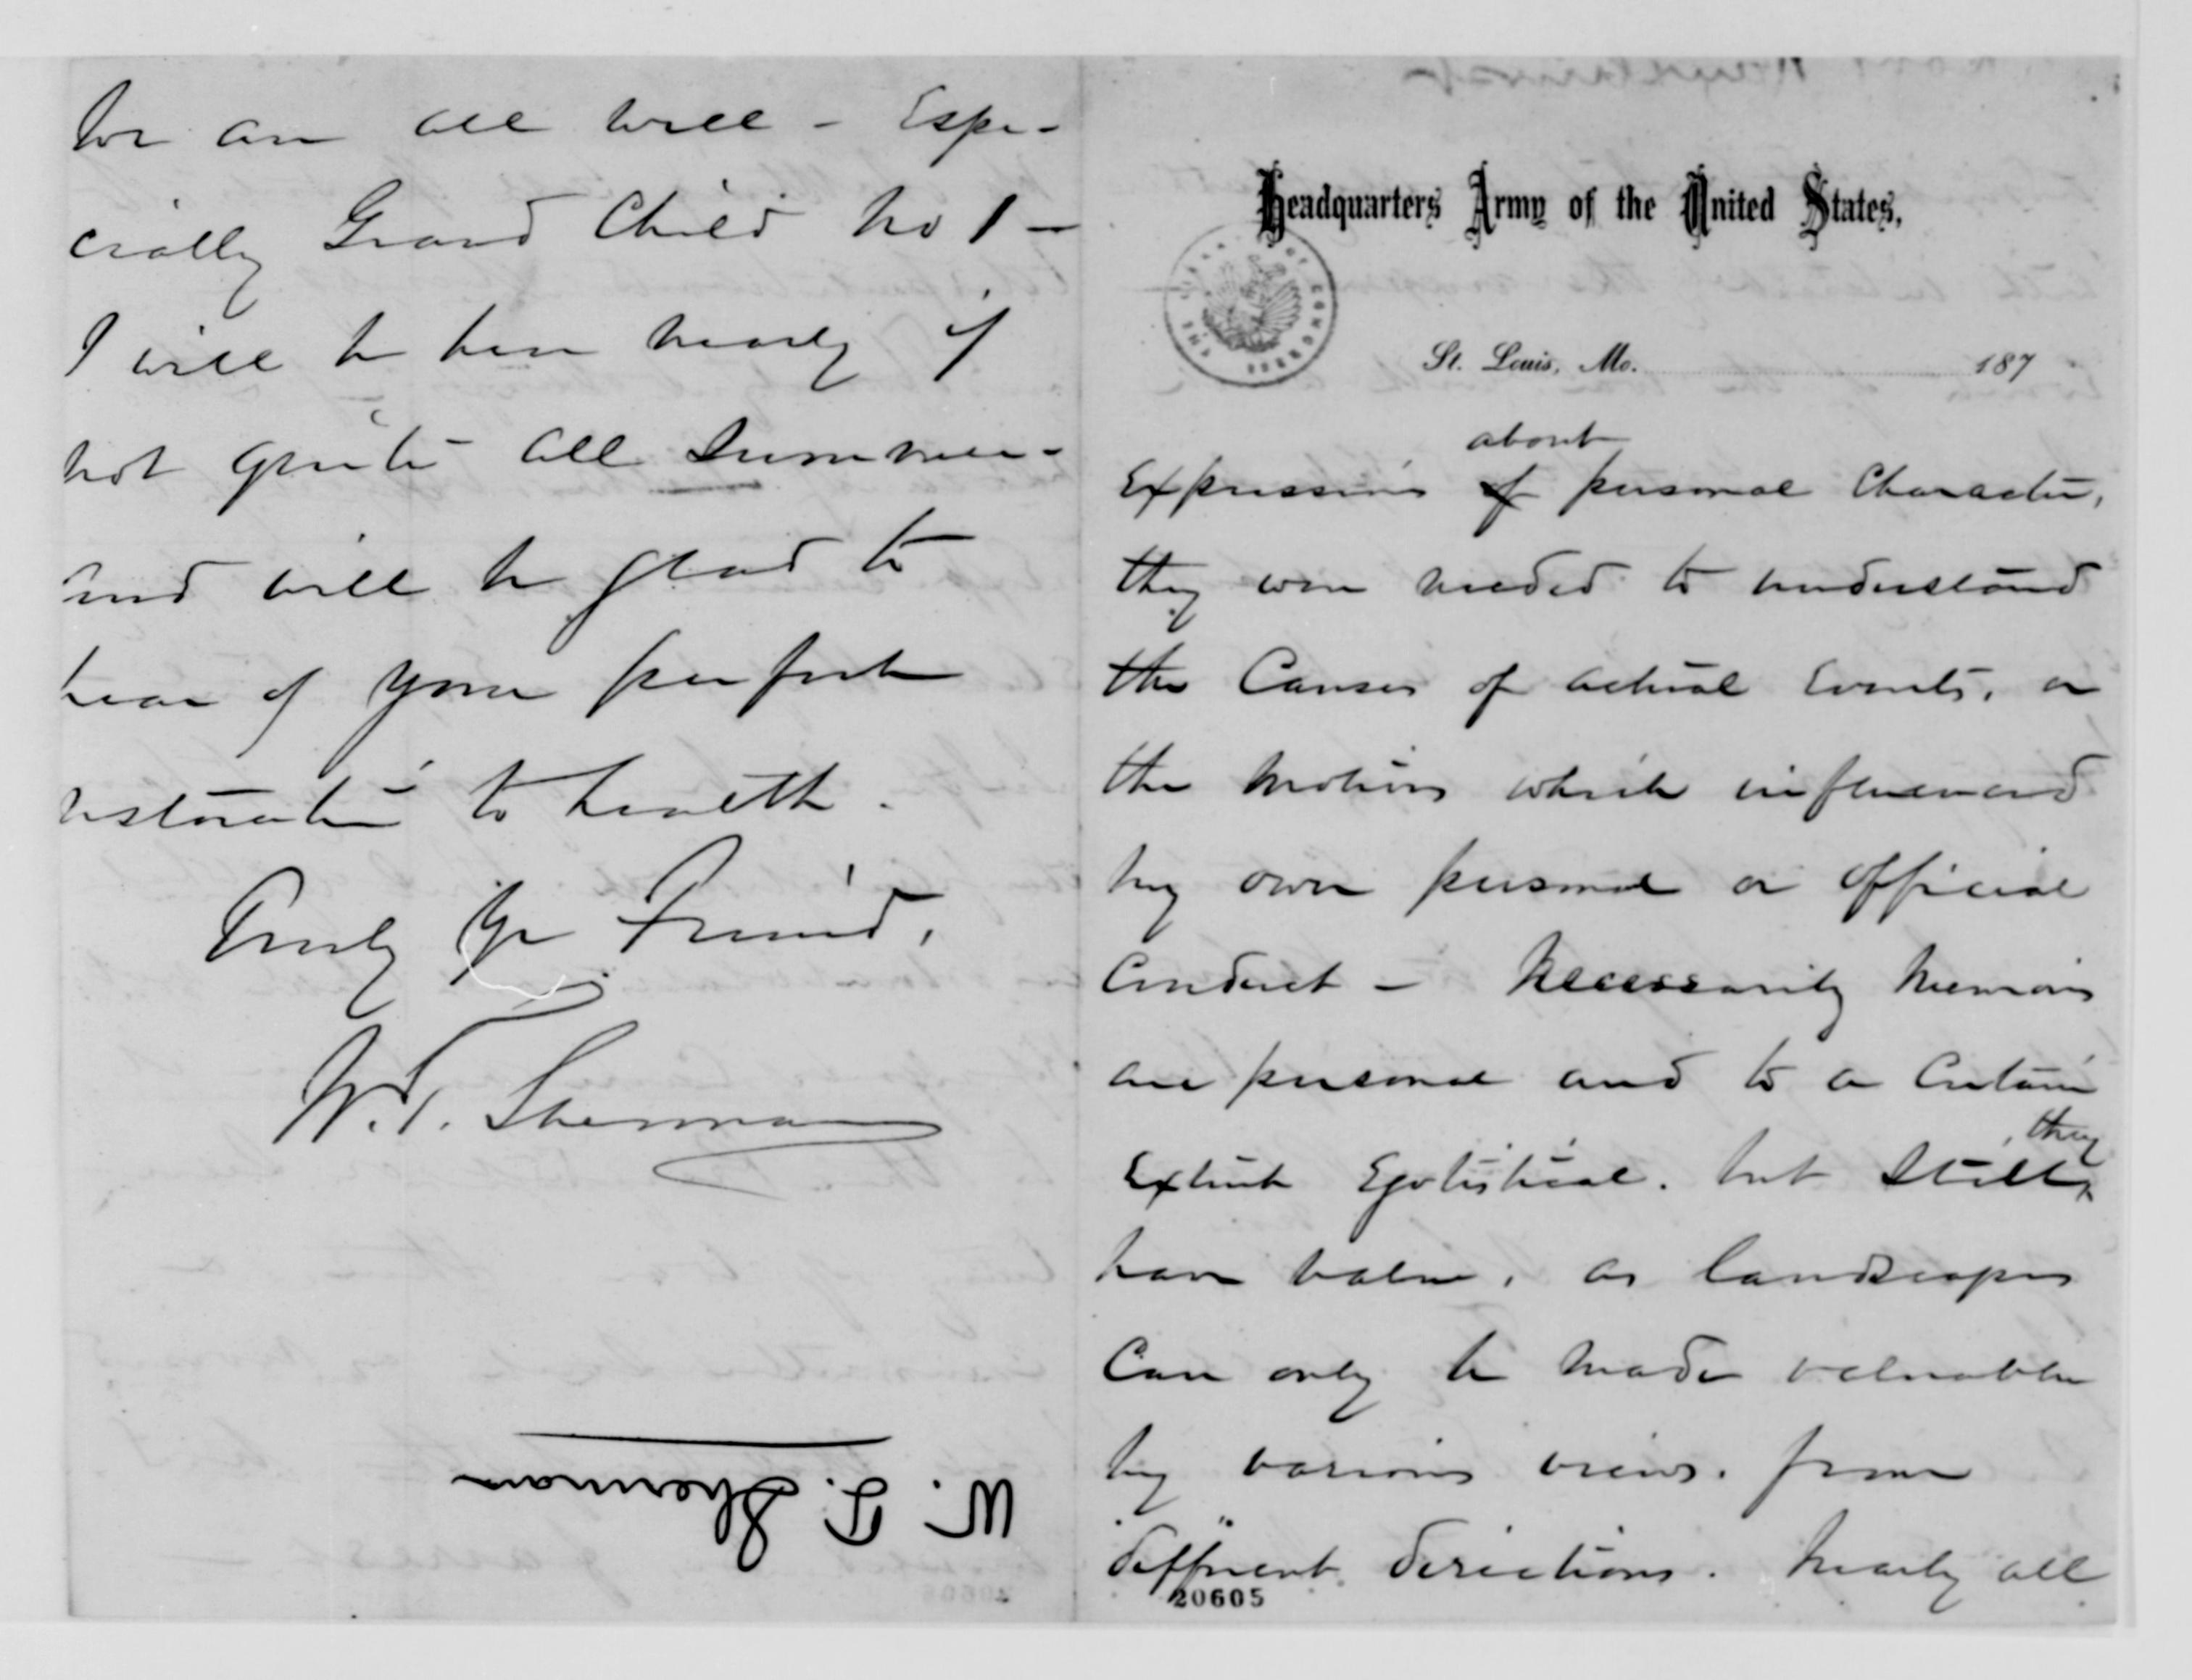 We are all well - Espe-
cially Grand Child No 1 -
I will be here nearly if
not quite all Summer -
and will be glad to
hear of your perfect
restoration to health.
Truly Yr Friend,
W. T. Sherman
W. T. Sherman
Headquarters Army of the United States,
St. Louis, Mo. 187
about
Expressions of personal Character,
they were needed to understand
the Causes of actual Events, or
the motives which influenced
my own personal or official
Conduct - Necessarily Memoirs
are personal and to a Certain
they
Extent Egotistical. but Still
have value, as landscapes
Can only be made valuable
by various views. from
different directions. Nearly all
20605